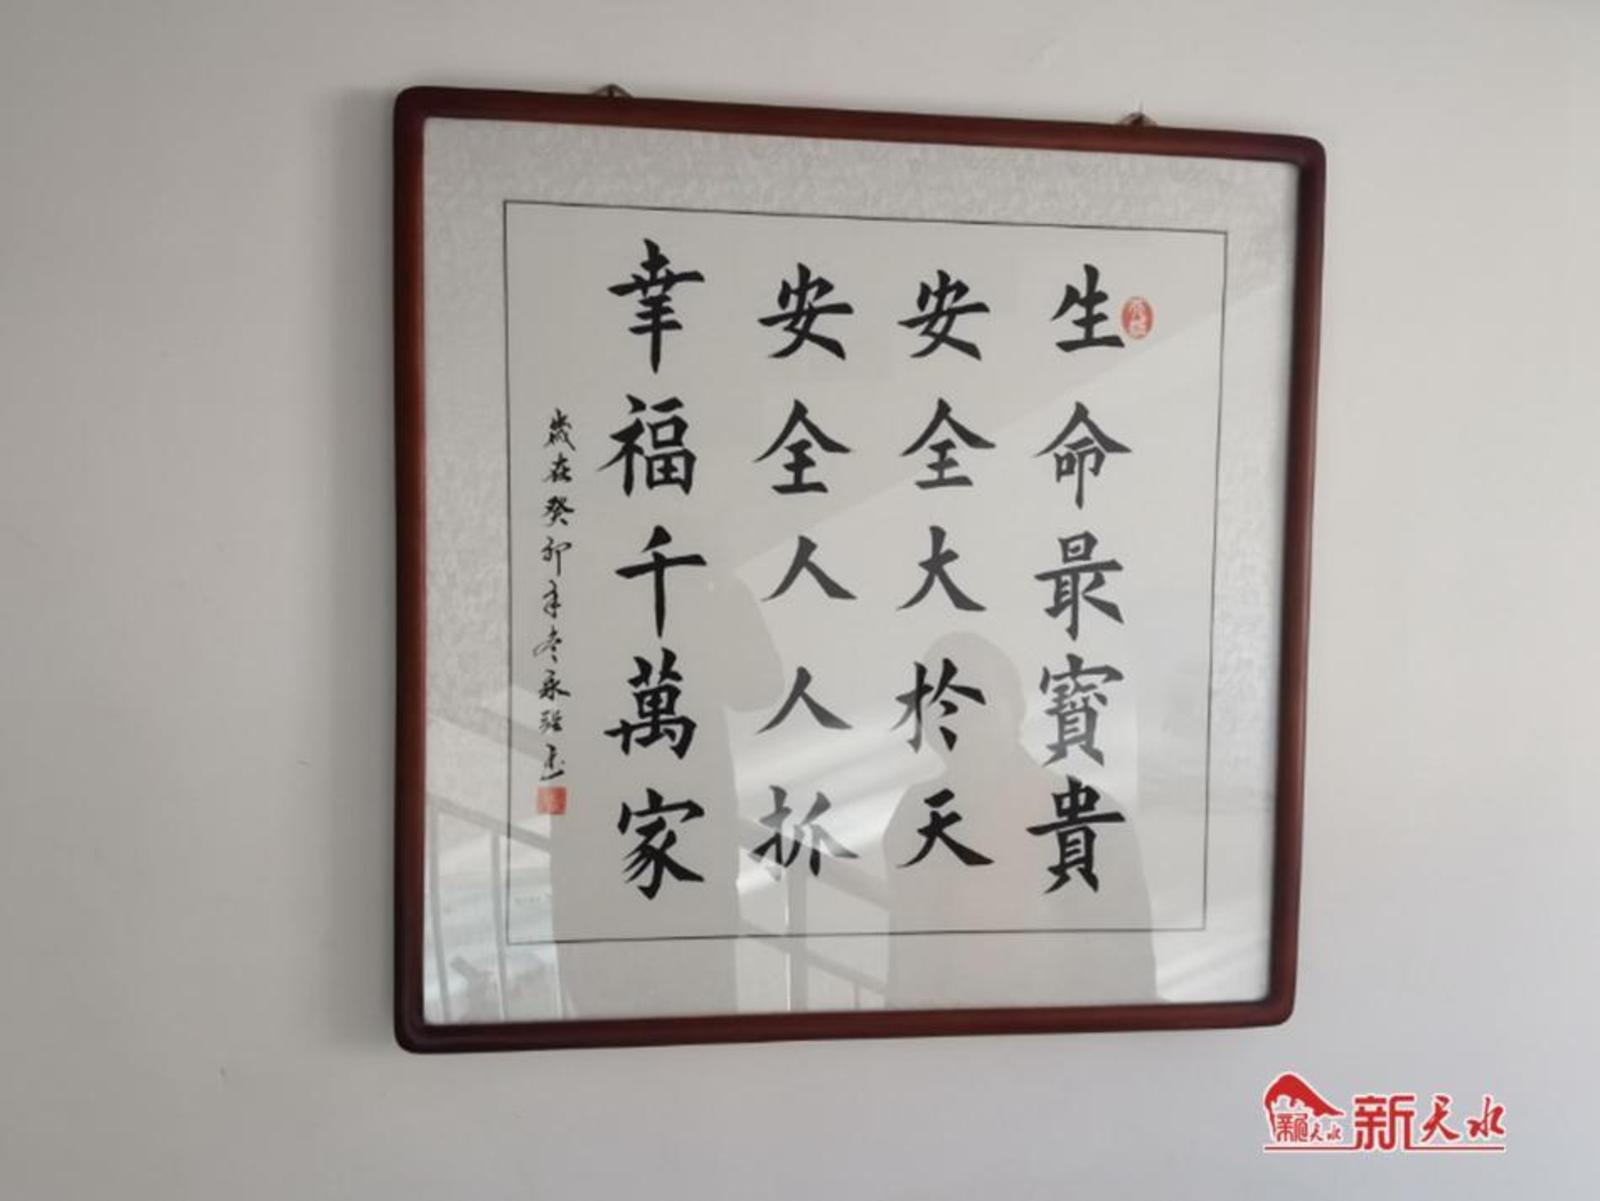 生命最寶貴
安全大於天
安全人人抓
幸福千萬家
歲在癸卯年冬永強書
新天水
新天水